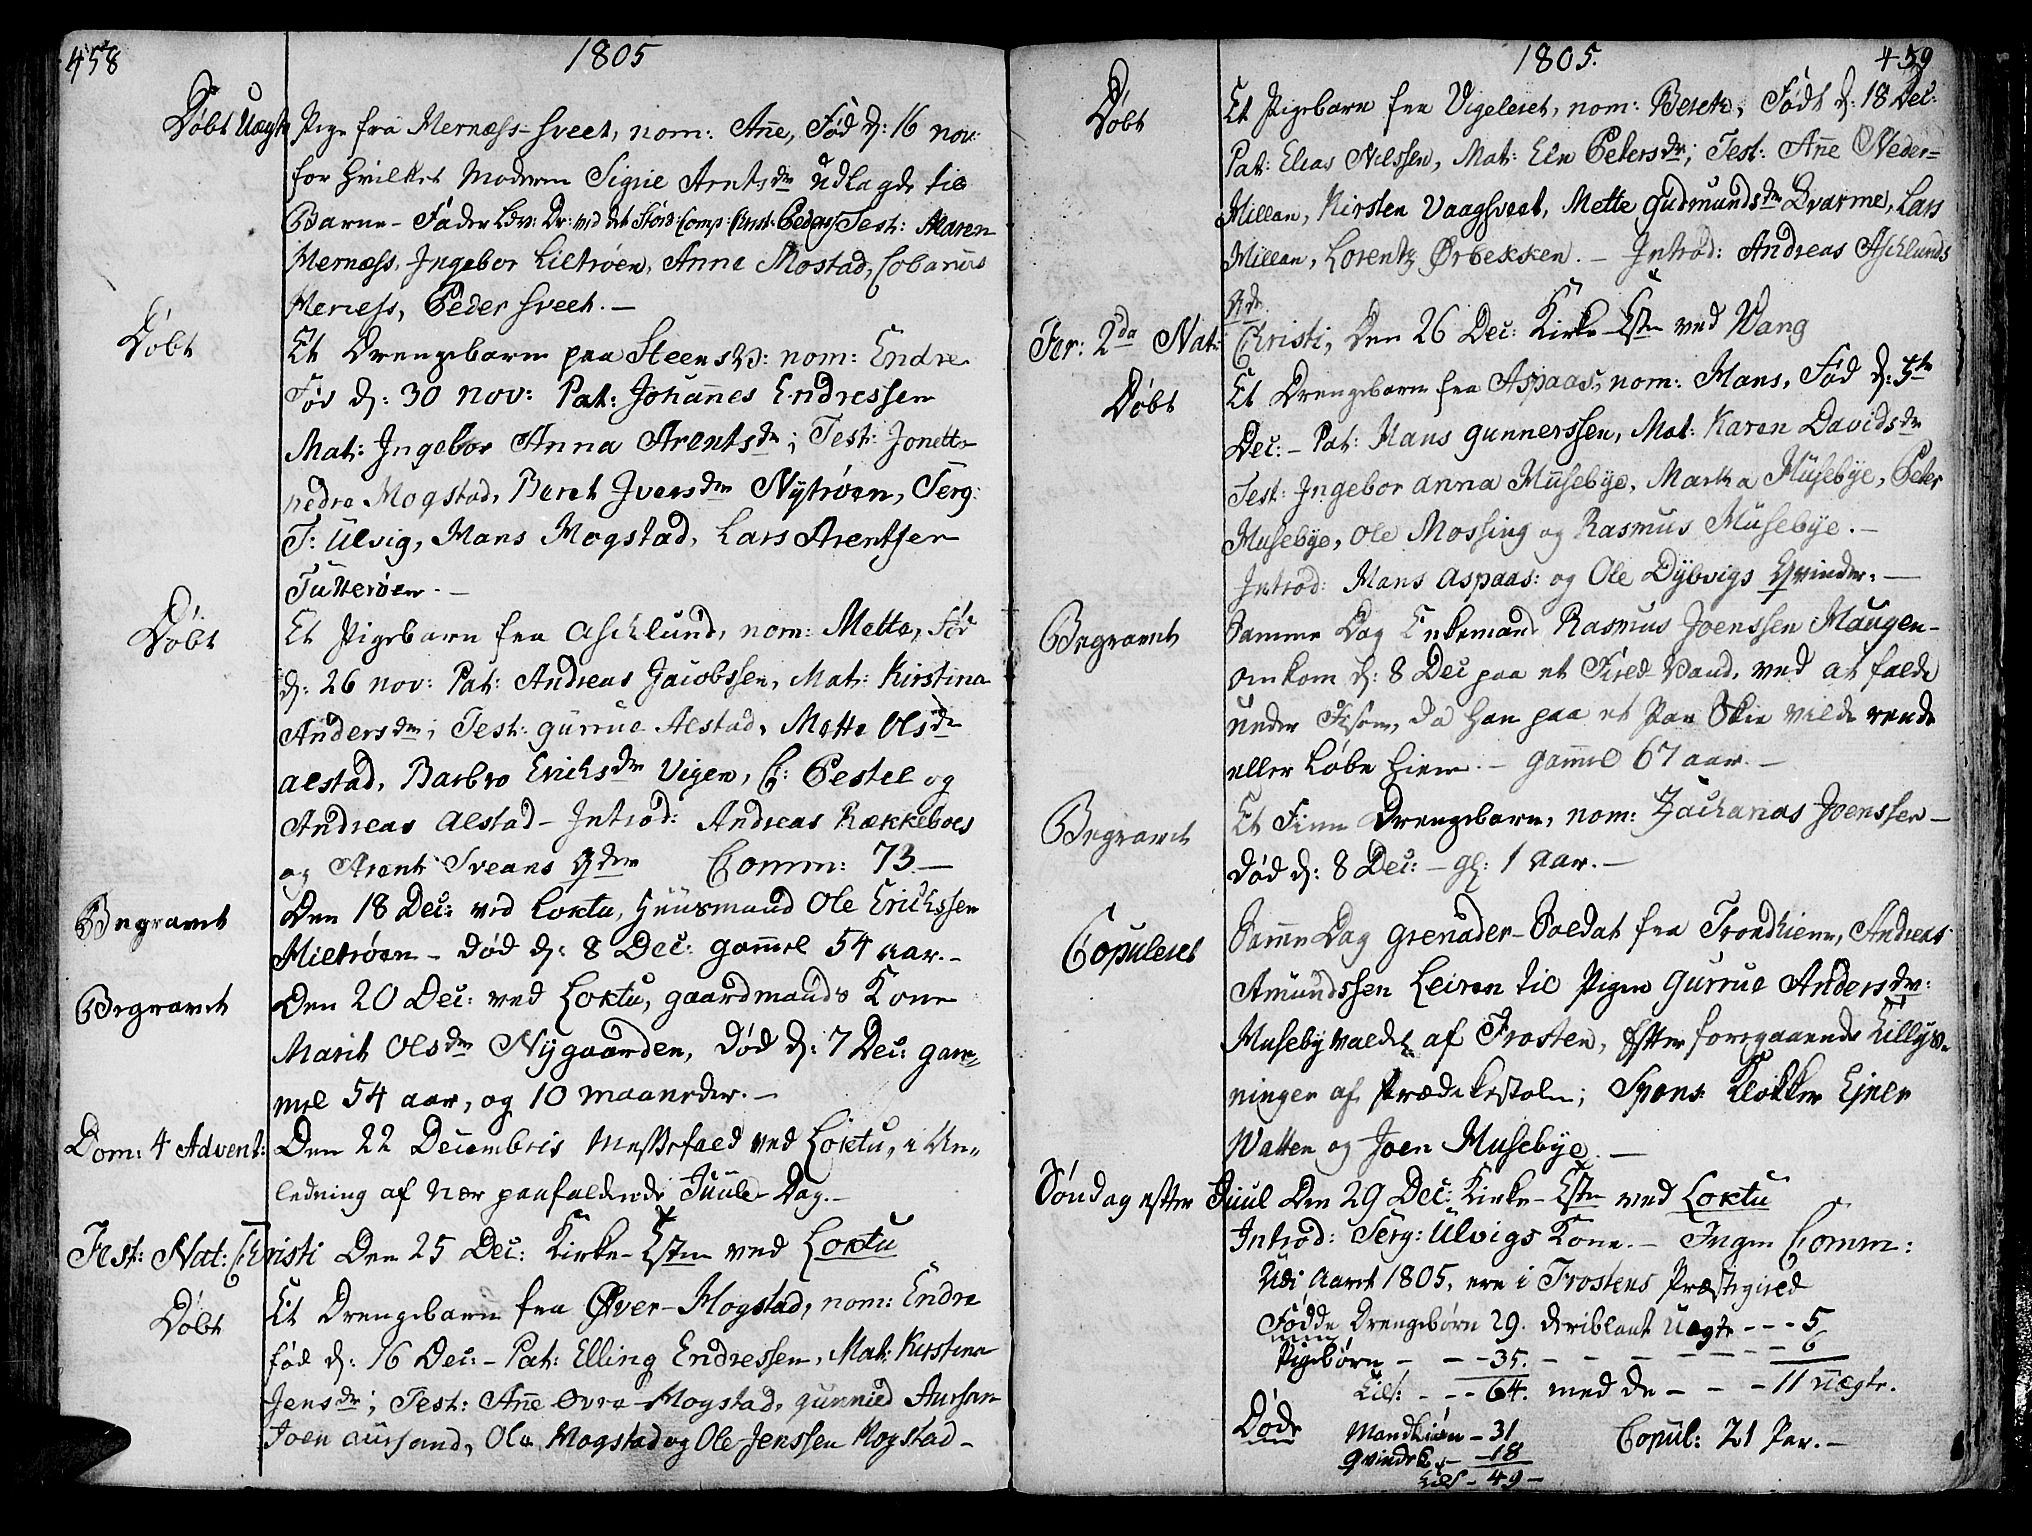 458
1805
Døbt Uægte Pige fra Mernæss-hveet, nom: Añe, Fød d: 16 nov:
for hvilket Moderen Sigrie Arntsdr udlagde til
Barne-Fader Test: Maren
Mernæss, Ingebor Lilträen, Anna Mostad,
Merness, Peder hveet.—
Døbt
Et Drengebarn paa Steens nom: Endre
Fød d: 30 nov: Pat: Johañes Endressen
Mat: Ingebor Anna Arentsdr; Test: Jonetta
nedre Mogstad, Beret Iversdr Nytrøen, Serg:
T: Ulvig, Hans Mogstad, Lars Arentsen
Tutterøen.—
Døbt
Et Pigebarn fra Aschlund, nom: Mette, Fød
d: 26 nov: Pat: Andreas Jacobssen, Mat: Kirstina
Andersdr; Test: gurrue Alstad, Mette Olsdr
alstad, Barbro Erichsdr Vigen, C: Pestel og
Andreas alstad - Introd: Andreas Rækkeboes
og Arent Sveans Comm: 73.—
Begravet
Den 18 Dec: ved Loktu, Huusmand Ole Erichssen
Mieltrøen - Død d: 8 Dec: gam̃el 54 aar.—
Begravet
Den 20 Dec: ved Loktu, gaardmands Kone
Marit Olsdr Nygaarden, Død d: 7 Dec: gam-
mel 54 aar, og 10 maaneder.—
Dom: 4 Advent:
Den 22 Decembris Messefald ved Loktu, i An-
ledning af nær paafaldende Juule-Dag.—
Fest: Nat: Christi Den 25 Dec: Kirke-Estn ved Loktu
Døbt
Et Drengebarn fra Øver-Mogstad, nom: Endre
fød d: 16 Dec:- Pat: Elling Endressen, Mat: Kirstina
Jensdr; Test: Añe Øvre-Mogstad, gunnild Aursan
Joen aursand, Ole Mogstad og Ole Jenssen Mogstad -
1805.
459
Døbt
Et Pigebarn fra Vigeleret, nom: Beret, Født d: 18 Dec:
Pat: Elias Nilssen, Mat: Eln Petersdr; Test: Añe Neder-
Millan, Kirsten Vaaghveet, Mette gudmundsdr Dvarme, Lars
Millan, Lorentz Ørbekken.— Introd: Andreas Aschlunds
Fer: 2da Nat: Christi, Den 26 Dec: Kirke-Estn ved Vang
Døbt
Et Drengebarn fra Aspaas, nom: Hans, Fød d: 5te
Dec:- Pat: Hans gunnerssen, Mat: Karen Davidsdr
Test: Ingebor anna Musebye, Martha Musebye, Peter
Musebye, Ole Mossing og Rasmus Musebye.—
Introd: Hans aspaas: og Ole Dybvigs Qvinder.—
Begravet
Samme Dag Enkemand Rasmus Joenssen Haugen-
omkom d: 8 Dec paa et Field Vand, ved at falde
under Isen, da han paa et Par Skie vilde rende
eller løbe hiem.— gam̃el 67 aar.—
Begravet
Et Finn Drengebarn, nom: Zacharias Joenssen—
død d: 8 Dec:- gl: 1 aar.—
Copuleret
Sam̃e Dag grenader-Soldat fra Trondhiem, Andreas
Amundssen Leiren til Pigen Gurrue Andersdr:
Musebyvaldet af Frosten, Efter foregaaende Tillys-
ninger af Prædikestolen; Spons: Klokker Ejner
Watten og Joen Musebye.—
Søndag efter Juul Den 29 Dec: Kirke-Estn ved Loktu
Introd: Serg: Ulvigs Kone.— Ingen Comm:
Udi Aaret 1805, ere i Frostens Præstegield
Fødde Drengebørn 29. deriblant Uægte - - - 5
Pigebørn - - - 35. - - - - - - 6
Tils: - - - 64. med de - - - 11 uægte.
Døde Mandkiøn - 31 Copul: 21 Par.—
Qvindek: - 18
Tils - 49 -